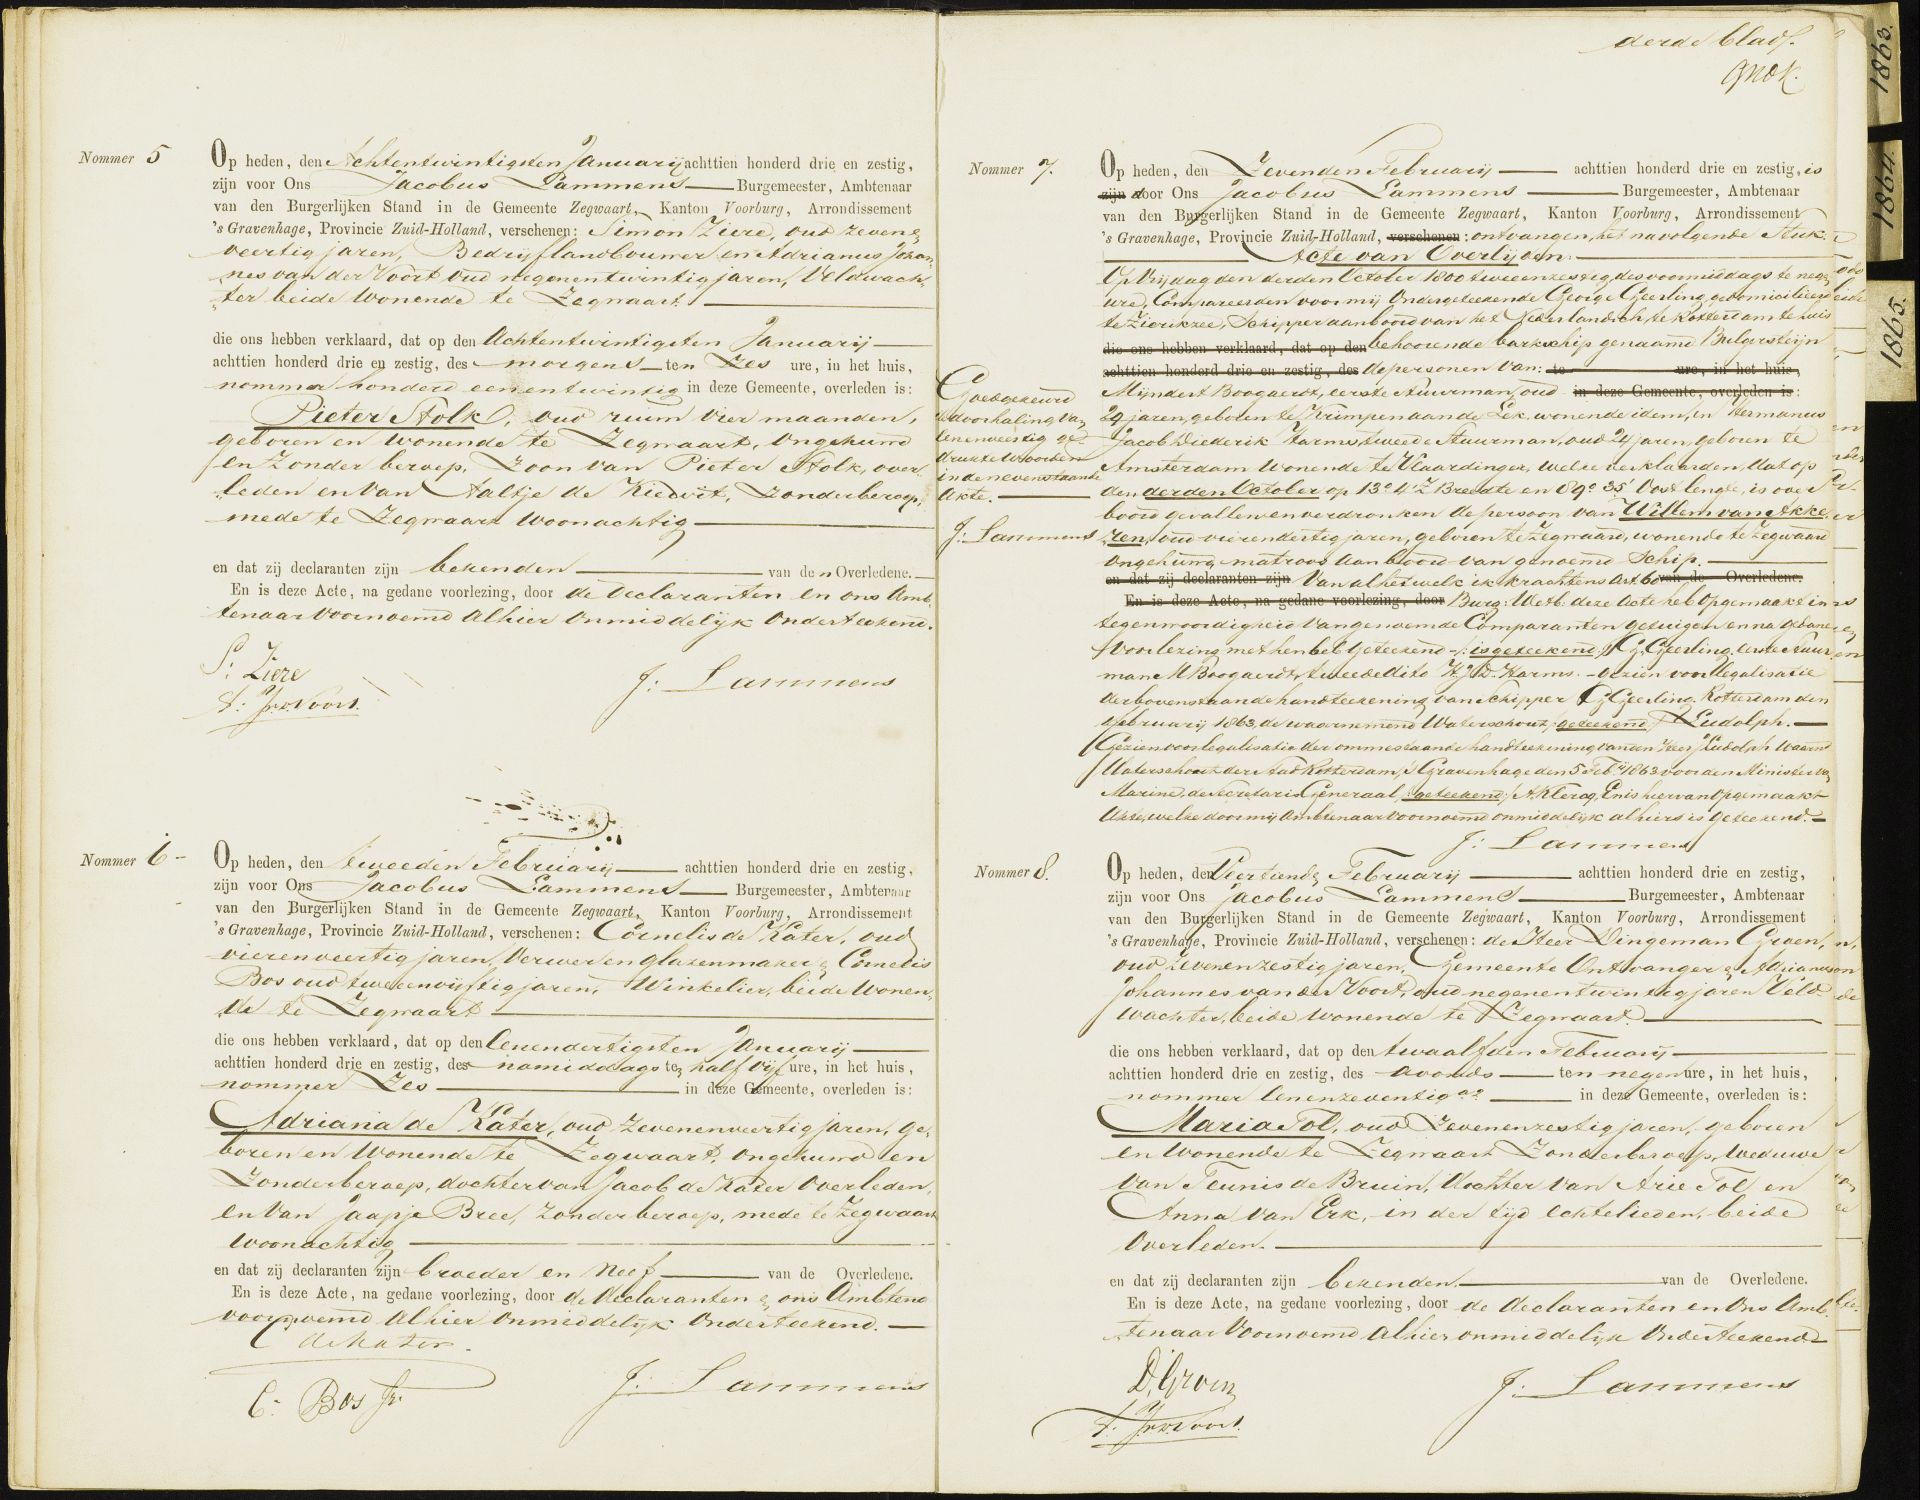 Nommer 5
Op heden, den Achtentwintigsten Januarij achttien honderd drie en zestig,
zijn voor Ons Jacobus Lammens Burgemeester, Ambtenaar
van den Burgerlijken Stand in de Gemeente Zegwaart, Kanton Voorburg, Arrondissement
's Gravenhage, Provincie Zuid-Holland, verschenen: Simon Ziere, oud zeven &
veertig jaren, Bedrijflandbouwer en Adrianus Johan
nes van der Voort oud negenentwintig jaren, Veldwach-
ter beide wonende te Zegwaart
die ons hebben verklaard, dat op den Achtentwintigsten Januarij
achttien honderd drie en zestig, des morgens ten Zes ure, in het huis,
nommer honderd eenentwintig in deze Gemeente, overleden is:
Pieter Stolk, oud ruim vier maanden,
geboren en wonende te Zegwaart, ongehuwd
en zonder beroep, Zoon van Pieter Stolk, over-
leden en van Aaltje de Kiewit, zonder beroep,
mede te Zegwaart woonachtig
en dat zij declaranten zijn bekenden van den Overledene.
En is deze Acte, na gedane voorlezing, door de declaranten en ons Amb-
tenaar voornoemd alhier onmiddelijk onderteekend.
S: Ziere
J: Lammens
A: J. v. d. Voort.
Nommer 6
Op heden, den tweeden Februarij achttien honderd drie en zestig,
zijn voor Ons Jacobus Lammens Burgemeester, Ambtenaar
van den Burgerlijken Stand in de Gemeente Zegwaart, Kanton Voorburg, Arrondissement
's Gravenhage, Provincie Zuid-Holland, verschenen: Cornelis de Kater, oud
vierenveertig jaren, Verwer en glazenmaker & Cornelis
Bos oud tweeenvijftig jaren, Winkelier, beide wonen-
de te Zegwaart
die ons hebben verklaard, dat op den Eenendertigsten Januarij
achttien honderd drie en zestig, des namiddags ten half vijf ure, in het huis,
nommer Zes in deze Gemeente, overleden is:
Adriana de Kater, oud zevenenveertig jaren, ge-
boren en wonende te Zegwaart, ongehuwd en
Zonder beroep, dochter van Jacob de Kater overleden,
en van Jaapje Bree, zonder beroep, mede te Zegwaart
woonachtig
en dat zij declaranten zijn broeder en Neef van de Overledene.
En is deze Acte, na gedane voorlezing, door de declaranten & ons Ambtena
voornoemd alhier onmiddelijk onderteekend.
C de Kater.
J: Lammens
C. Bos Jr.
derde blad.
Nommer 7.
Op heden, den Zevenden Februarij achttien honderd drie en zestig, is
zijn door Ons Jacobus Lammens Burgemeester, Ambtenaar
van den Burgerlijken Stand in de Gemeente Zegwaart, Kanton Voorburg, Arrondissement
's Gravenhage, Provincie Zuid-Holland, verschenen: ontvangen, het navolgende Stuk.
Acte van Overlijden:
Op Vrijdag den derden October 1800 tweeenzestig des voormiddags te negen
ure, Compareerden voor mij Ondergeteekende George Geerling, gedomicilieerd
te Zierikzee, Schipper aan boord van het Nederlandsch, te Rotterdam te huis
die ons hebben verklaard, dat op den behoorende barkschip genaamd Bulgersteijn
achttien honderd drie en zestig, des de personen van: te ure, in het huis,
Mijndert Boogaerdt, eerste stuurman, oud in deze Gemeente, overleden is:
29 jaren, geboren te Krimpen aan de Lek, wonende idem, en Hermanus
Jacob Diederik Harms, tweede stuurman, oud 24 jaren, geboren te
Amsterdam wonende te Vlaardingen, welke verklaarden, dat op
den derden October op 13° 4' Z Breedte en 89° 35' Oost lengte, is over
boord gevallen en verdronken de persoon van Willem van Akke
ren, oud vierendertig jaren, geboren te Zegwaard, wonende te Zegwaard
ongehuwd, matroos aan boord van genoemd Schip.
en dat zij declaranten zijn Van al hetwelk ik krachtens Art. 60 van de Overledene.
En is deze Acte, na gedane voorlezing, door Burg: Wetb: deze acte heb opgemaakt in
tegenwoordigheid van genoemde Comparanten getuigen en na gedane
voorlezing met hen heb geteekend (:is geteekend:) G. Geerling, eerste stuur
man M Boogaerdt, tweede dito H. J. D. Harms. Gezien voor legalisatie
der bovenstaande handteekening van schipper G. Geerling, Rotterdam den
Februarij 1863, de waarnemend Waterschout, geteekend, Ludolph.
Gezien voor legalisatie der ommestaande handteekening van den Heer Ludolph Waarn.
Waterschout der Stad Rotterdam, 's Gravenhage den 5 Feb. 1863 voor den Minister van
Marine, de Secretaris Generaal, geteekend, A. Klercq, En is hiervan opgemaakt
Akte, welke door mij Ambtenaar voornoemd onmiddelijk alhier is geteekend.
J: Lammens
Goedgekeurd
de doorhaling van
eenenveertig ge-
drukte woorden
in de nevenstaande
akte.
J: Lammens
Nommer 8.
Op heden, den Veertiende Februarij achttien honderd drie en zestig,
zijn voor Ons Jacobus Lammens Burgemeester, Ambtenaar
van den Burgerlijken Stand in de Gemeente Zegwaart, Kanton Voorburg, Arrondissement
's Gravenhage, Provincie Zuid-Holland, verschenen: de Heer Dingeman Groen,
oud zevenenzestig jaren, Gemeente Ontvanger & Adrianus
Johannes van der Voort, oud negenentwintig jaren Veld
wachter, beide wonende te Zegwaart.
die ons hebben verklaard, dat op den twaalfden Februarij
achttien honderd drie en zestig, des avonds ten negen ure, in het huis,
nommer Eenenzeventig a2 in deze Gemeente, overleden is:
Maria Tol, oud Zevenenzestig jaren, geboren
en wonende te Zegwaart Zonder beroep, weduwe
van Teunis de Bruin, dochter van Arie Tol en
Anna van Erk, in der tijd echtelieden, beide
overleden.
en dat zij declaranten zijn bekenden van de Overledene.
En is deze Acte, na gedane voorlezing, door de declaranten en Ons Amb
tenaar voornoemd alhier onmiddelijk onderteekend
D, Groen
J: Lammens
A. J. v. d. Voort.
1863.
1864.
1865.